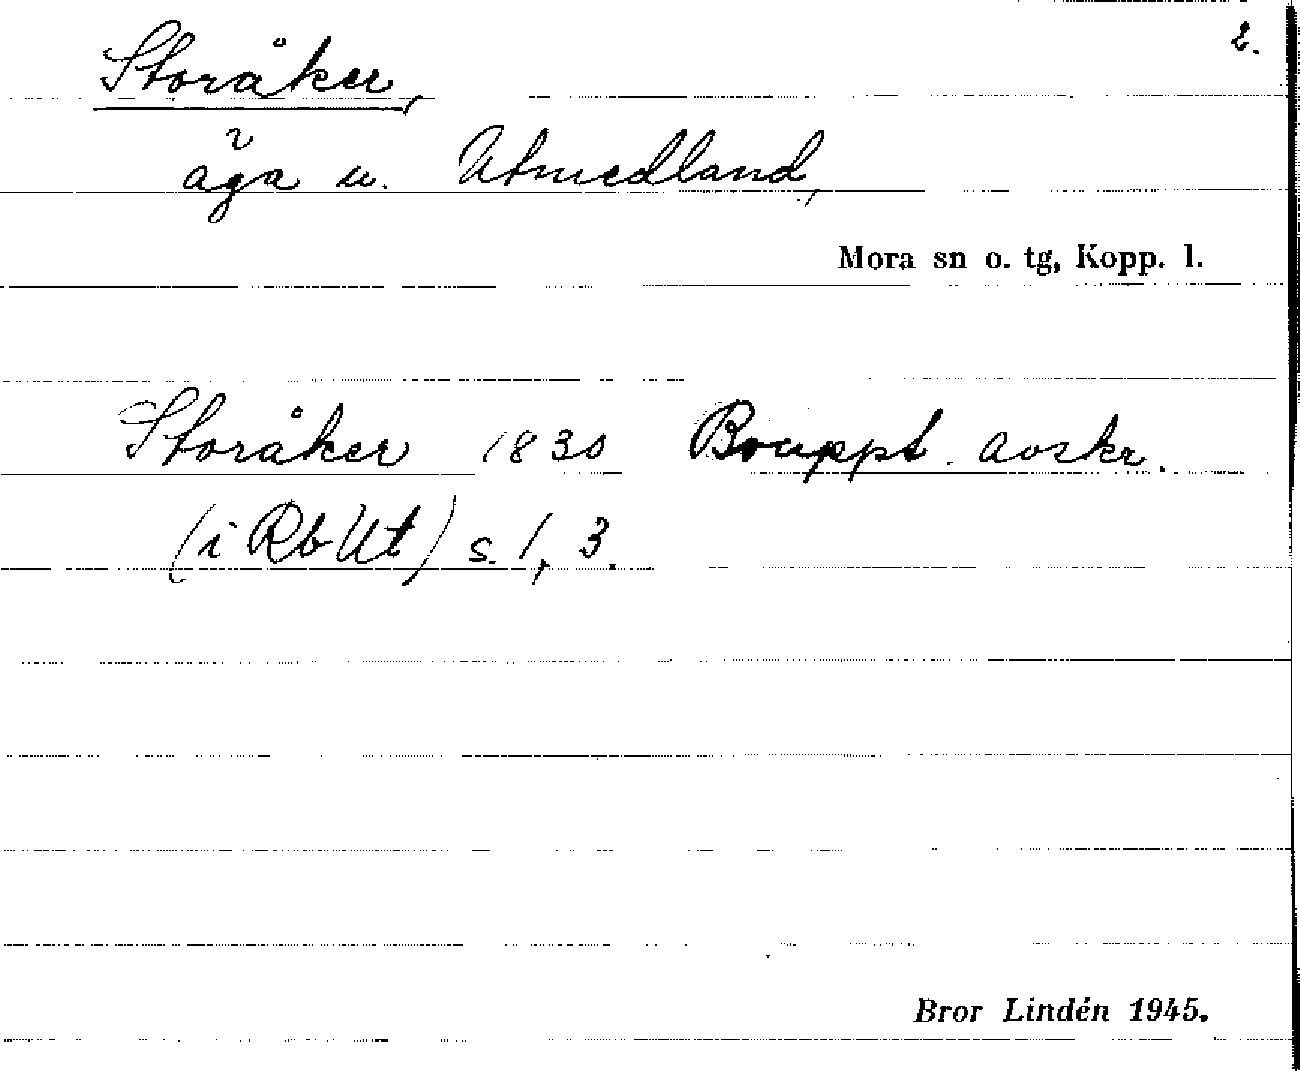 2.
Storåker,
äga u. Utmedland,
Mora sn o. tg, Kopp. l.
Storåker 1830 Bouppt. avskr.
(i Rb Ut) s. 1, 3.
Bror Lindén 1945.